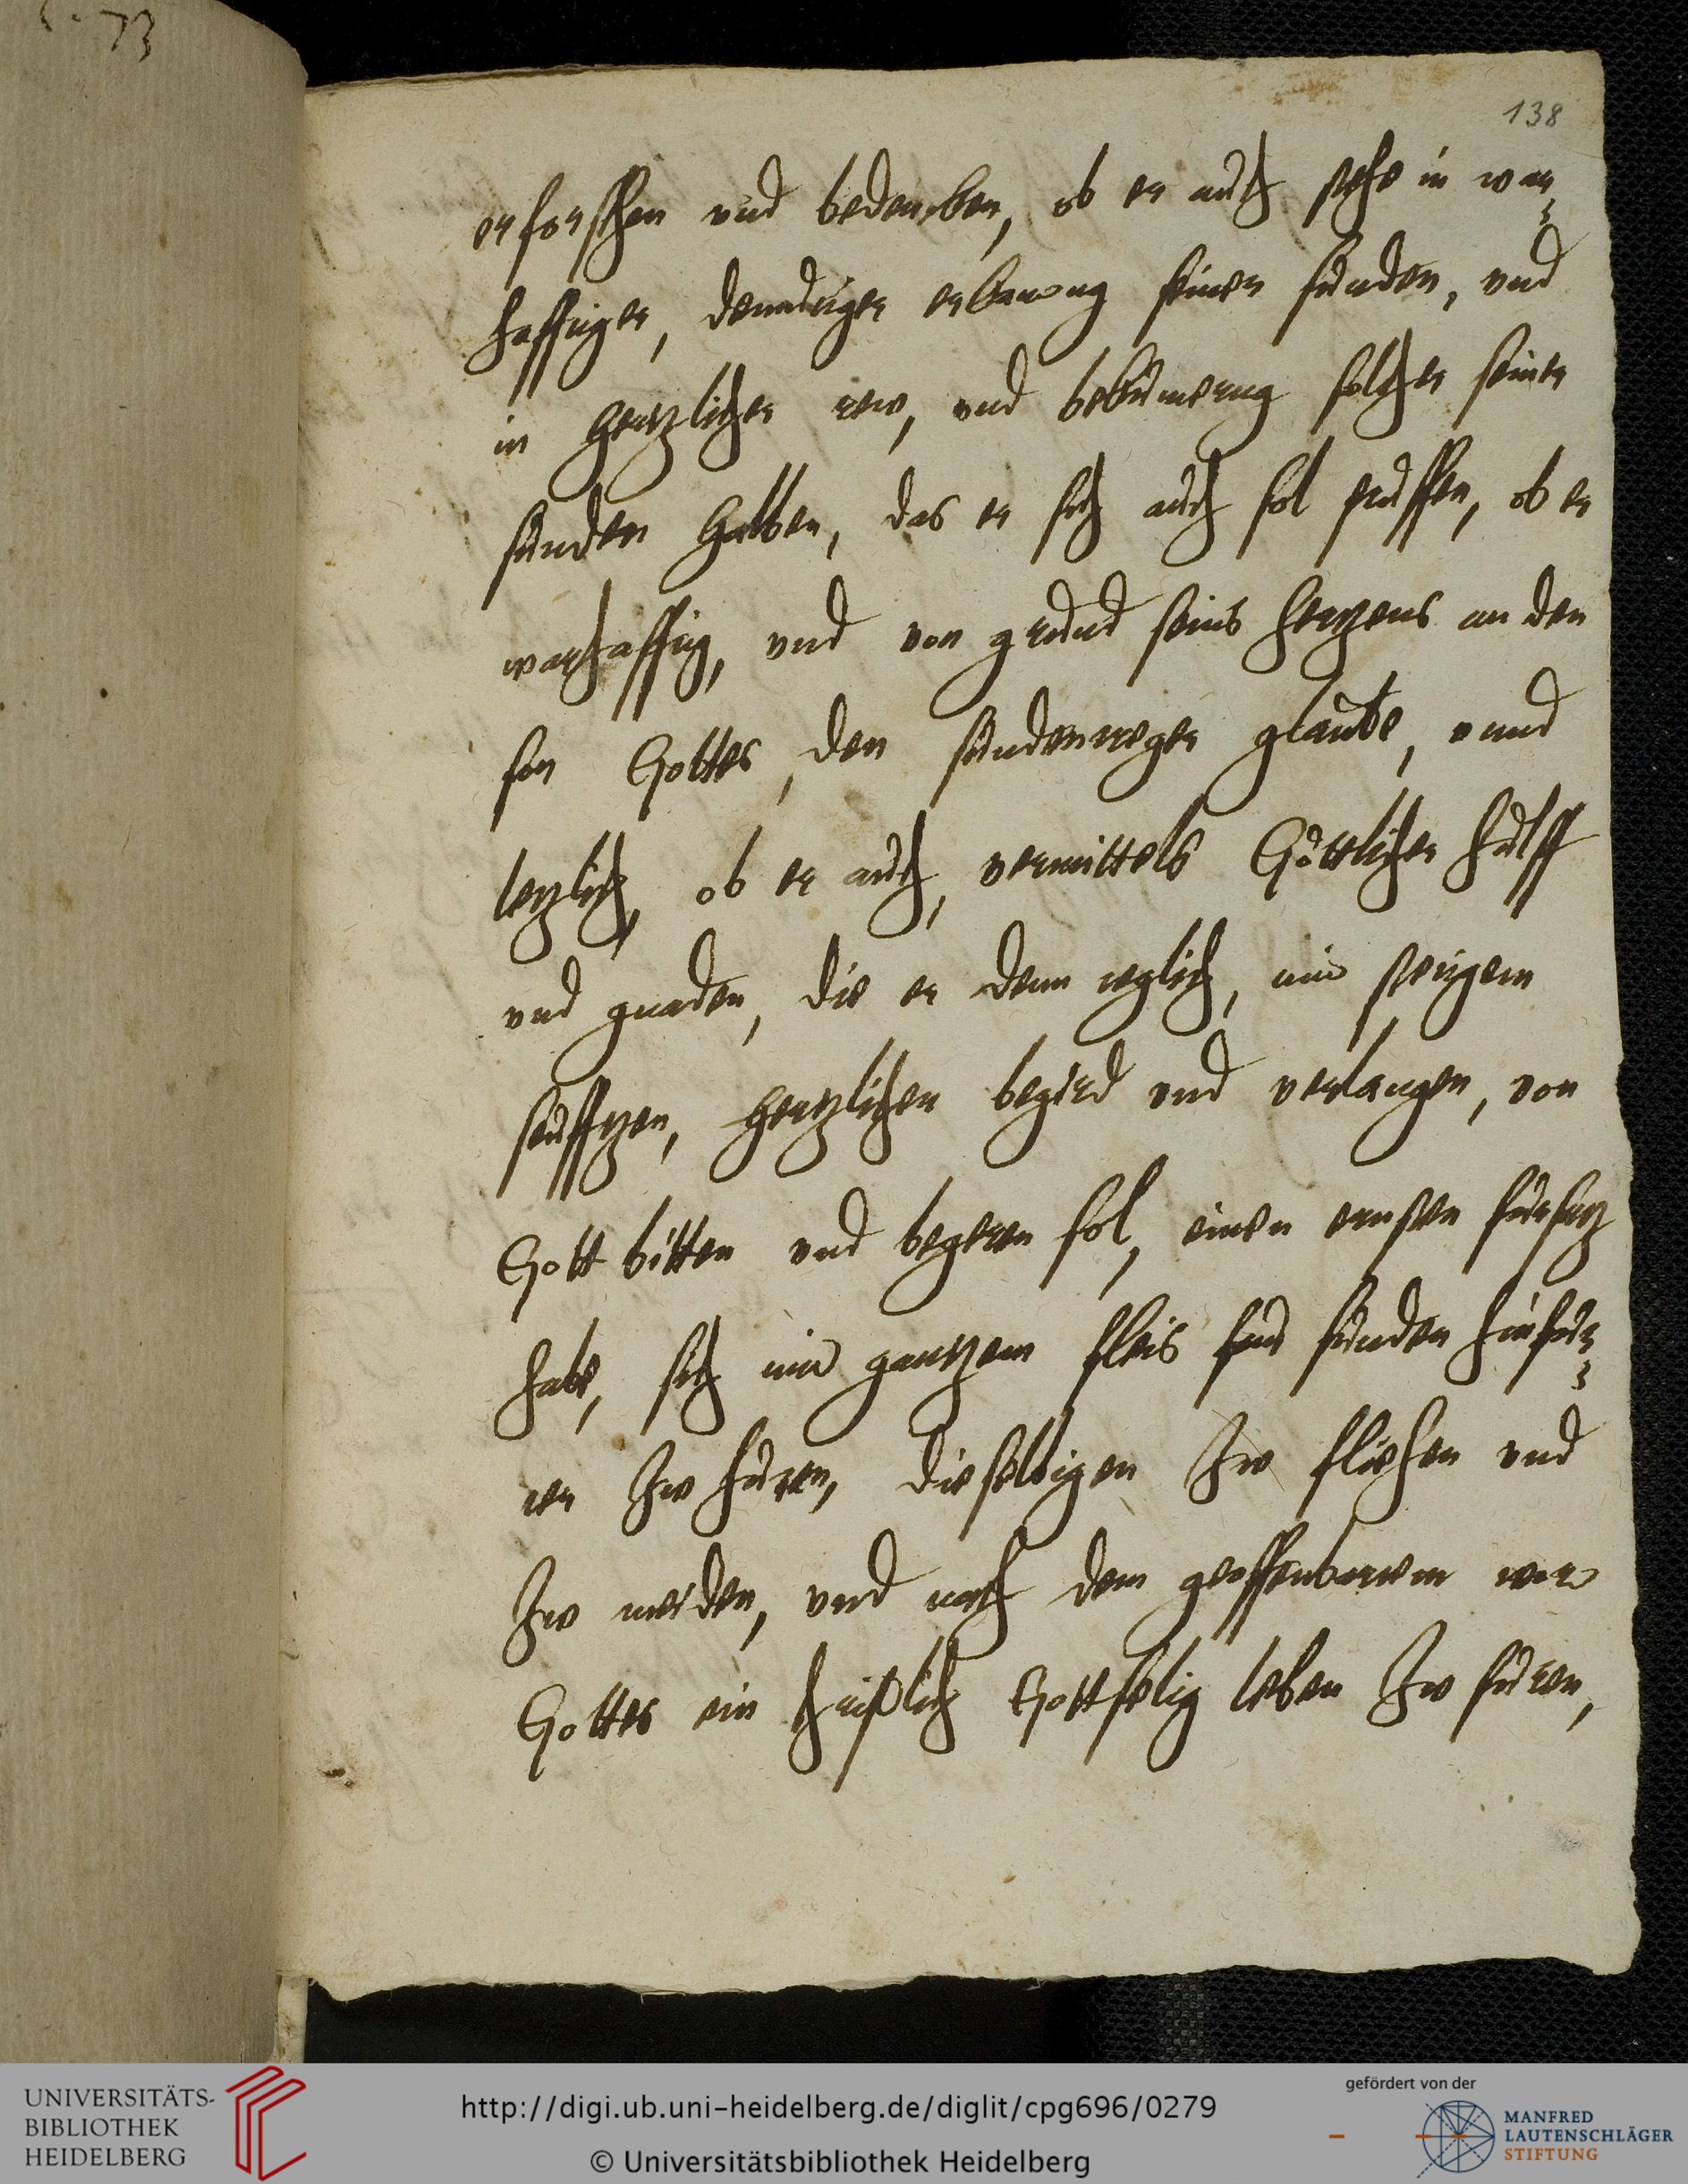 138
erforschen vnd bedencken, ob er auch stehe in war-
hafftiger, demutiger erkantnus seiner sunden, vnd
in hertzlicher rew, vnd bekumernus solcher seiner
sunden halben, das er sich auch sol prüffen, ob er
warhafftig, vnd von grund seins hertzens an den
son Gottes, den sundentreger glaube, vnnd
letzlich, ob er auch, vermittels Göttlicher hülff
vnd gnaden, die er denn teglich, mit stetigem
seufftzen, hertzlicher begird vnd verlangen, von
Gott bitten vnd begeren sol, einen ernsten fürsatz
habe, sich mit gantzem fleis für sünden hinfür-
ter zw hüten, dieselbigen zw fliehen vnd
zw meiden, vnd nach dem geoffenbarten wort
Gottes ein christlich Gottselig leben zw füren,
73
UNIVERSITÄTS-
BIBLIOTHEK
HEIDELBERG
http://digi.ub.uni-heidelberg.de/diglit/cpg696/0279
© Universitätsbibliothek Heidelberg
gefördert von der
MANFRED
LAUTENSCHLÄGER
STIFTUNG